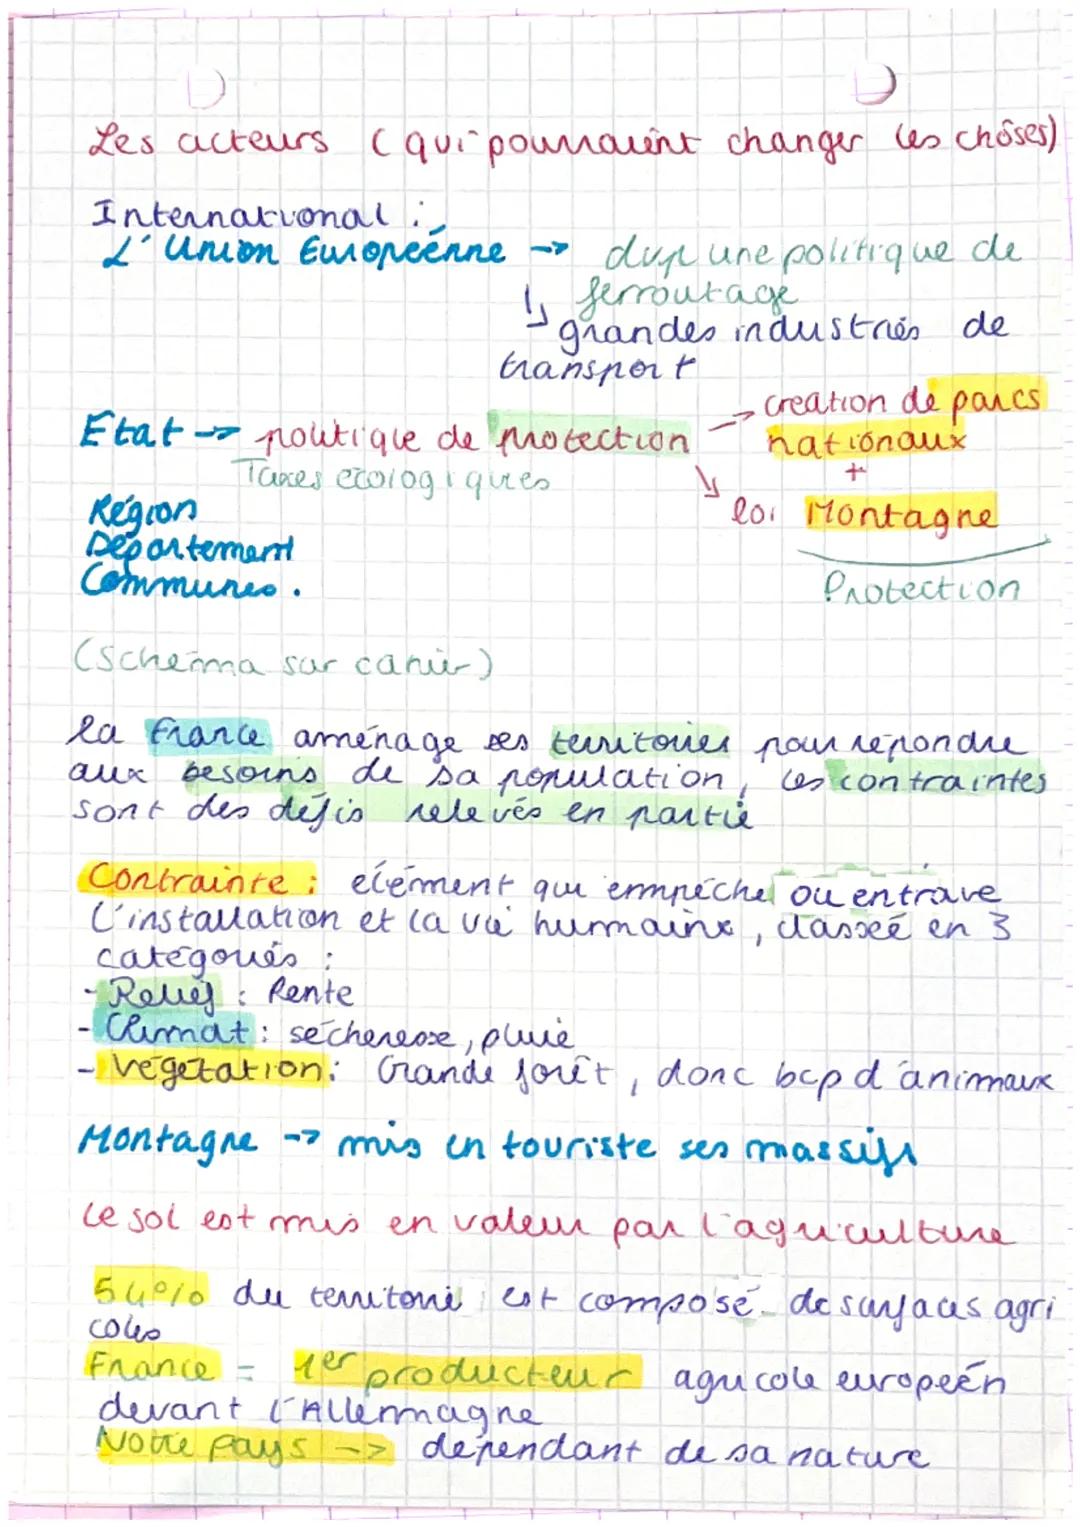 Les acteurs (qui pourraient changer les choses)
International :
L'Union Européenne -> dvp une politique de
ferroutage
↳ grandes industries de
transport
Etat -> politique de protection -> creation de parcs
nationaux
+
Taxes écologiques
↳ loi Montagne
Protection
Région
Département
Communes.
(Schéma sur cahier)
la France aménage ses territoires pour répondre
aux besoins de sa population, les contraintes
sont des défis relevés en partie
Contrainte : élément qui empêche ou entrave
l'installation et la vie humaine, classée en 3
catégories :
- Relief : Pente
- Climat : sécheresse, pluie
- végétation : Grande forêt, donc bcp d'animaux
Montagne -> mis en touriste ses massifs
Le sol est mis en valeur par l'agriculture
54% du territoire est composé de surfaces agri
coles
France = 1er producteur agricole européen
devant l'Allemagne
Notre pays -> dépendant de sa nature